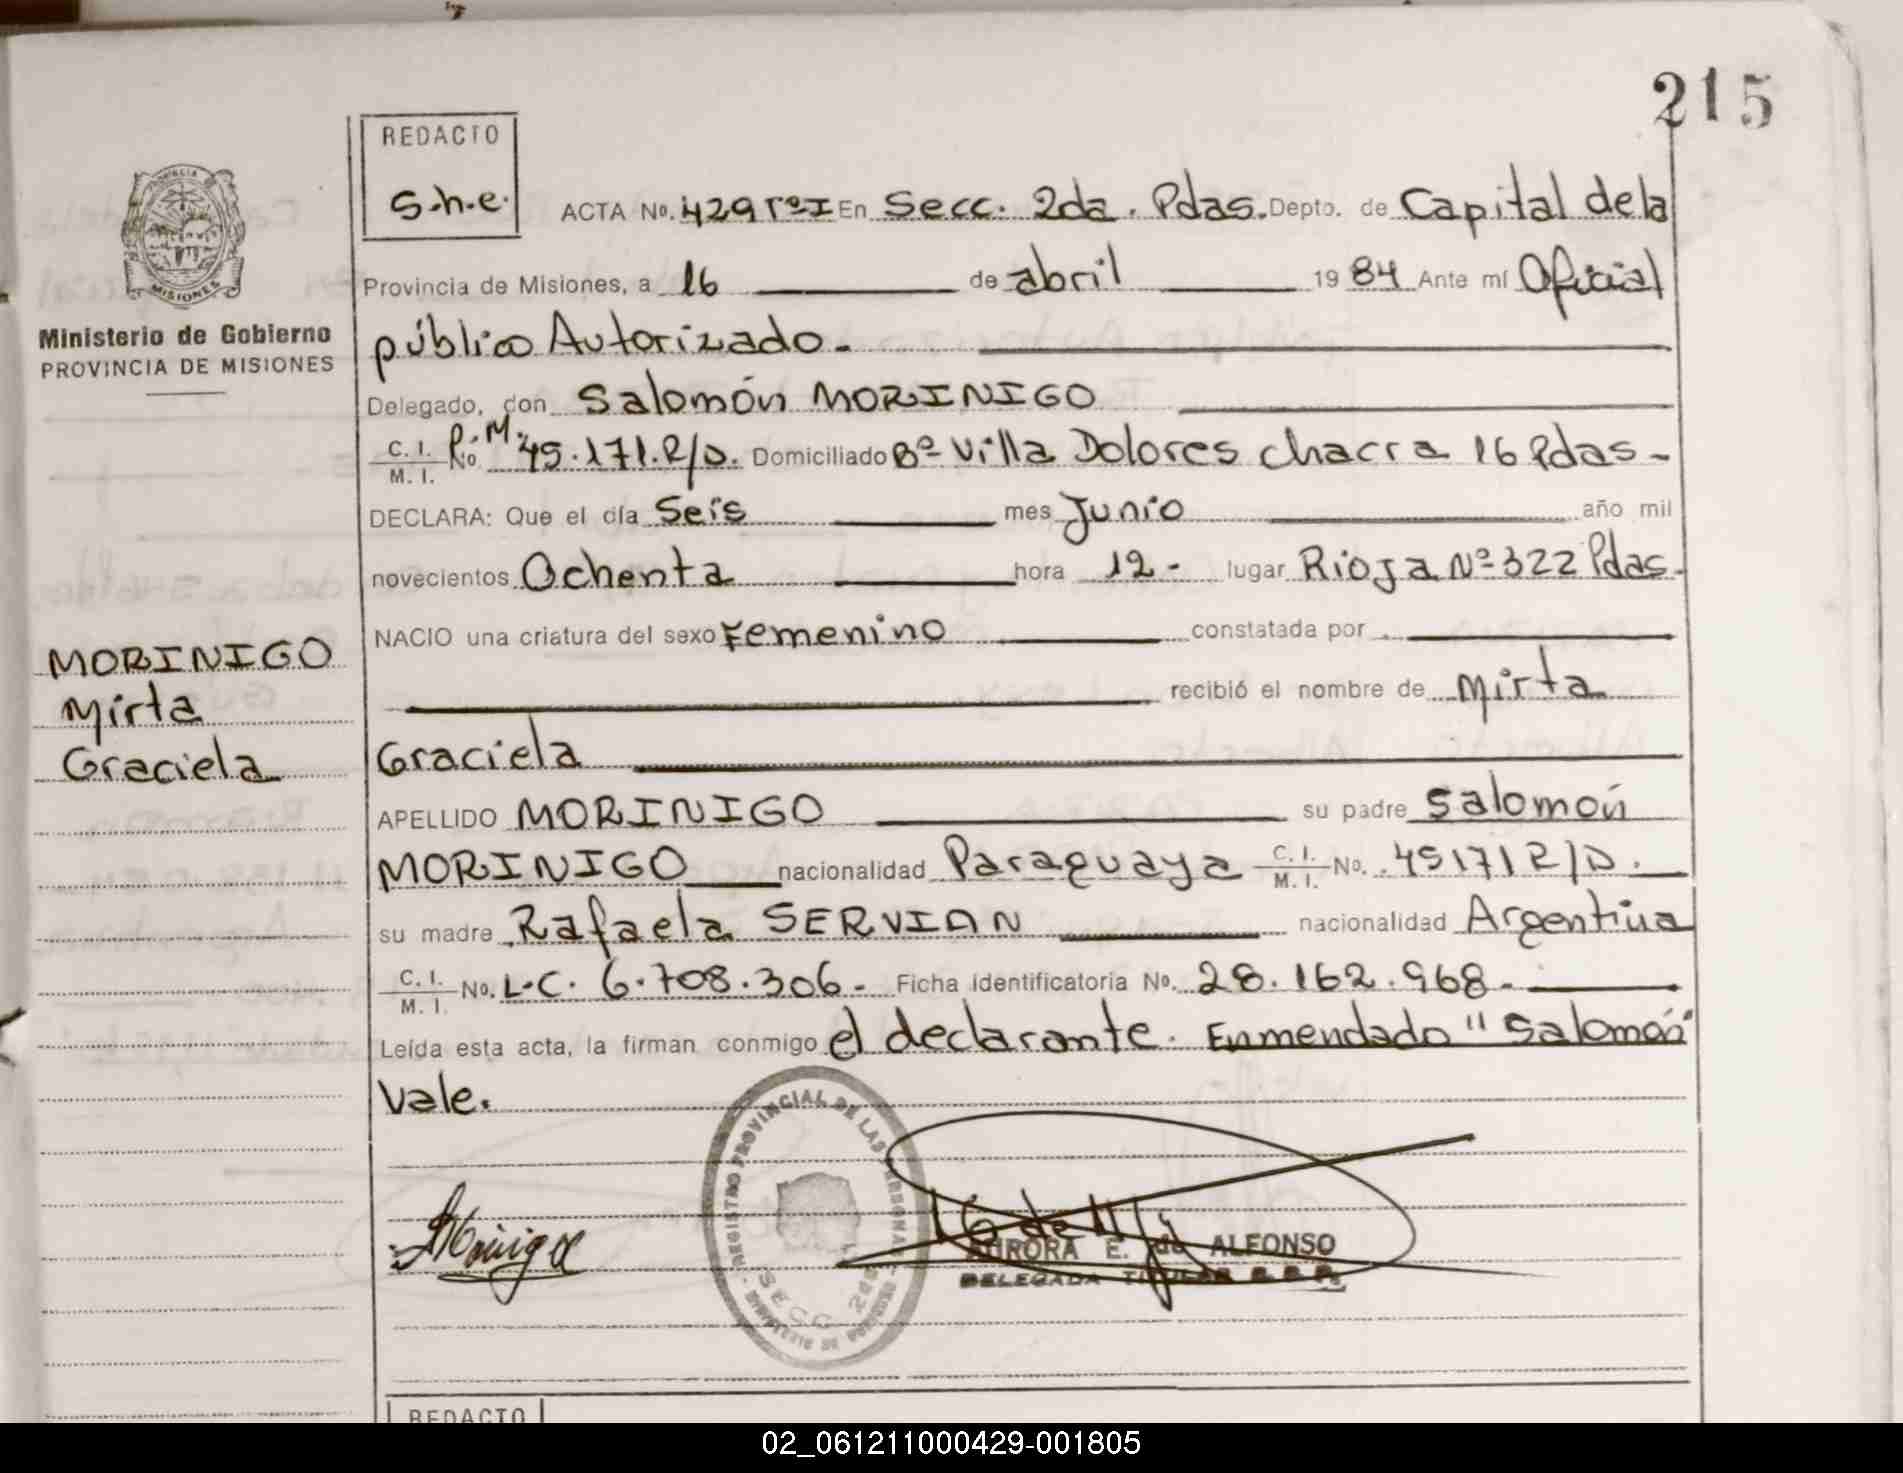 215
REDACTO
s.h.e.
ACTA No. 429 ToI En Secc. 2da. Pdas. Depto. de Capital de la
Provincia de Misiones, a 16 de abril 1984 Ante mí Oficial
público Autorizado.
Delegado, don Salomón MORINIGO
C. I. M. I. No. P.M. 45.171.R/D. Domiciliado Bº Villa Dolores chacra 16 Pdas-
DECLARA: Que el día Seis mes Junio año mil
novecientos Ochenta hora 12- lugar Rioja Nº 322 Pdas.
NACIO una criatura del sexo Femenino constatada por
recibió el nombre de Mirta
Graciela
APELLIDO MORINIGO su padre Salomón
MORINIGO nacionalidad Paraguaya C. I. M. I. No. 45171R/D.
su madre Rafaela SERVIAN nacionalidad Argentina
C. I. M. I. No. L.C. 6.708.306- Ficha Identificatoria No. 28.162.968-
Leída esta acta, la firman conmigo el declarante. Enmendado "Salomón"
Vale.
PROVINCIA
MISIONES
Ministerio de Gobierno
PROVINCIA DE MISIONES
MORINIGO
Mirta
Graciela
REGISTRO PROVINCIAL DE LAS PERSONAS
SECC 2da
MINISTERIO DE GOBIERNO
AURORA E. de ALFONSO
DELEGADA TITULAR
REDACTO
02_061211000429-001805